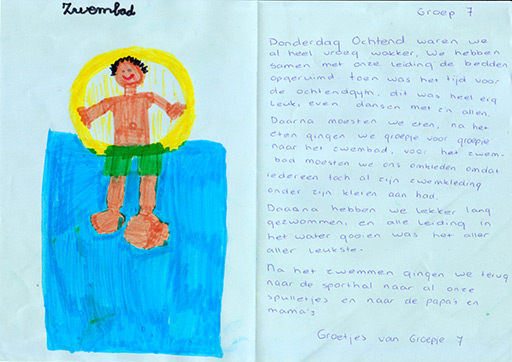 Zwembad
Groep 7
Donderdag Ochtend waren we
al heel vroeg wakker. We hebben
samen met onze leiding de bedden
opgeruimd. toen was het tijd voor
de ochtendgym. dit was heel erg
Leuk, even dansen met z'n allen.
Daarna moesten we eten, na het
eten gingen we groepje voor groepje
naar het zwembad, voor het zwem-
bad moesten we ons omkleden omdat
iedereen toch al zijn zwemkleding
onder zijn kleren aan had.
Daarna hebben we Lekker lang
gezwommen, en alle leiding in
het water gooien was het aller
aller leukste.
Na het zwemmen gingen we terug
naar de sporthal naar al onze
spulletjes en naar de papa's en
mama's
Groetjes van Groepje 7